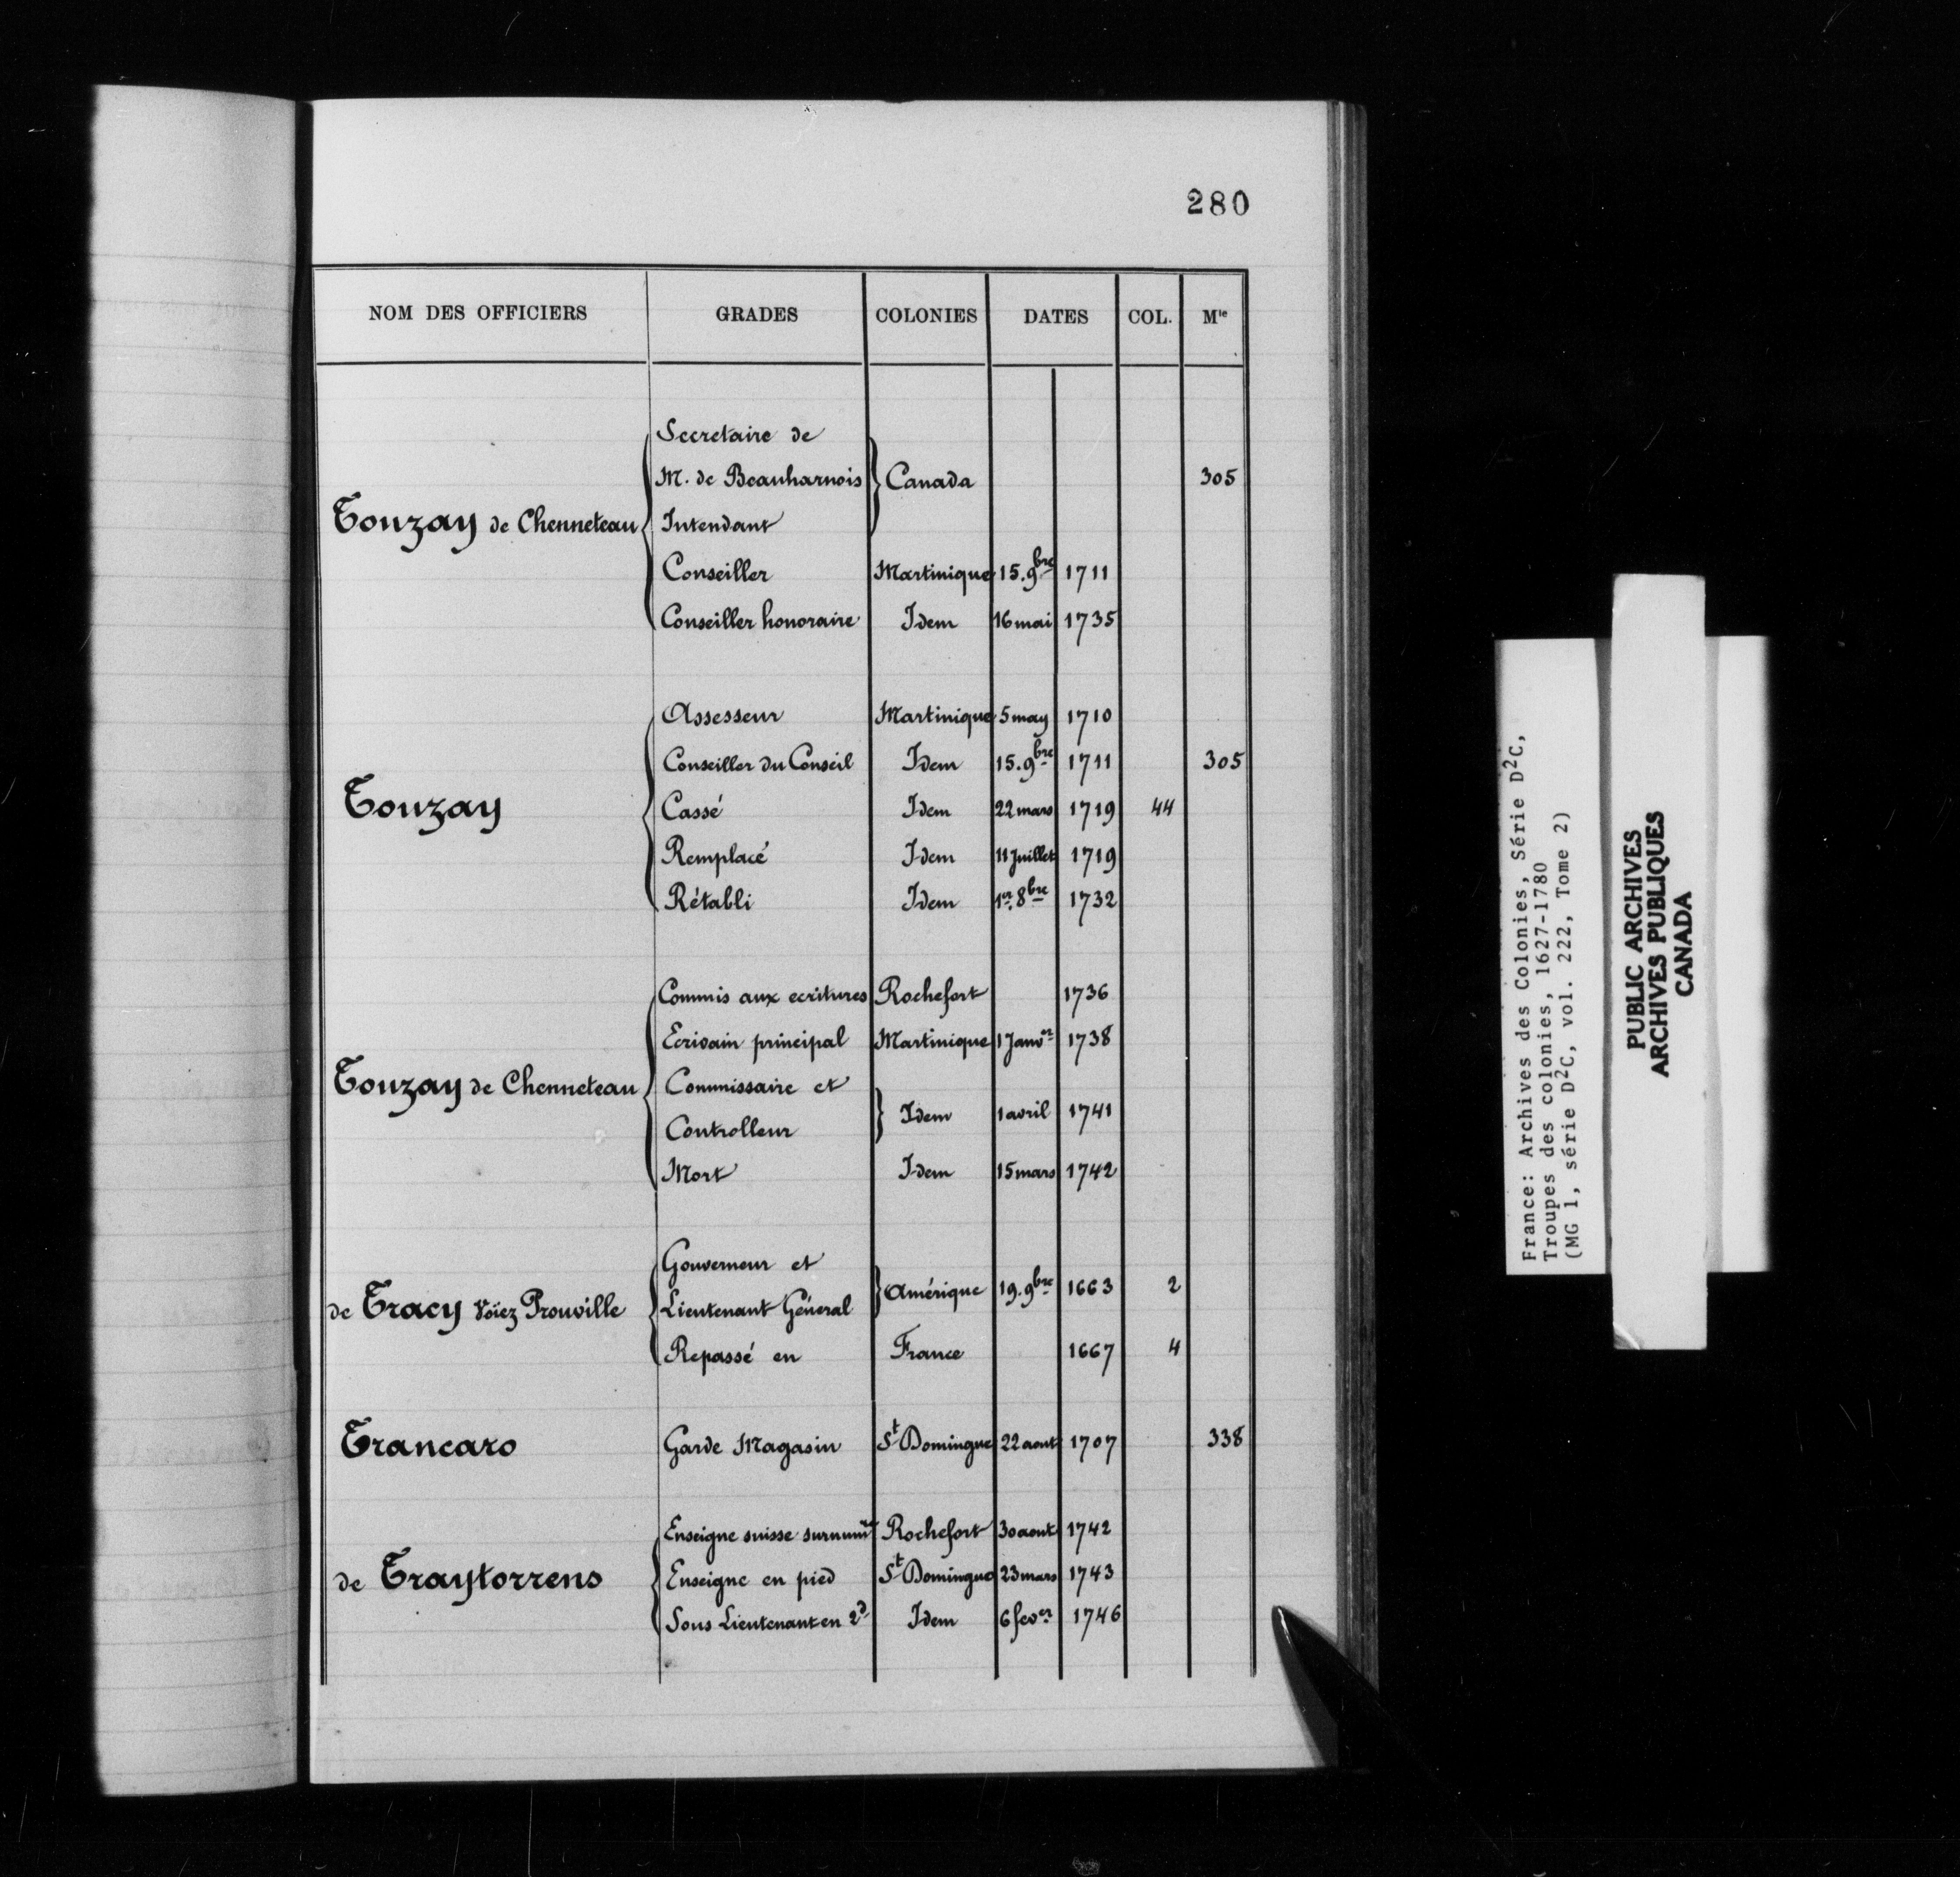 280
NOM DES OFFICIERS GRADES COLONIES DATES COL. Mle
Secretaire de
M. de Beauharnois Canada 305
Touzay de Chenneteau Intendant
Conseiller Martinique 15. 9bre 1711
Conseiller honoraire Idem 16 mai 1735
Assesseur Martinique 5 may 1710
Conseiller du Conseil Idem 15. 9bre 1711 305
Touzay Cassé Idem 22 mars 1719 44
Remplacé Idem 11 Juillet 1719
Rétabli Idem 1er. 8bre 1732
Commis aux ecritures Rochefort 1736
Ecrivain principal Martinique 1 Janver 1738
Touzay de Chenneteau Commissaire et
Controlleur Idem 1 avril 1741
Mort Idem 15 mars 1742
Gouverneur et
de Tracy Voïez Prouville Lieutenant Général Amérique 19. 9bre 1663 2
Repassé en France 1667 4
Trancaro Garde Magasin St Domingue 22 aout 1707 338
Enseigne suisse surnumre Rochefort 30 aout 1742
de Traytorrens Enseigne en pied St Domingue 23 mars 1743
Sous Lieutenant en 2d Idem 6 fever 1746
France: Archives des Colonies, Série D2C,
Troupes des colonies, 1627-1780
(MG 1, série D2C, vol. 222, Tome 2)
PUBLIC ARCHIVES
ARCHIVES PUBLIQUES
CANADA